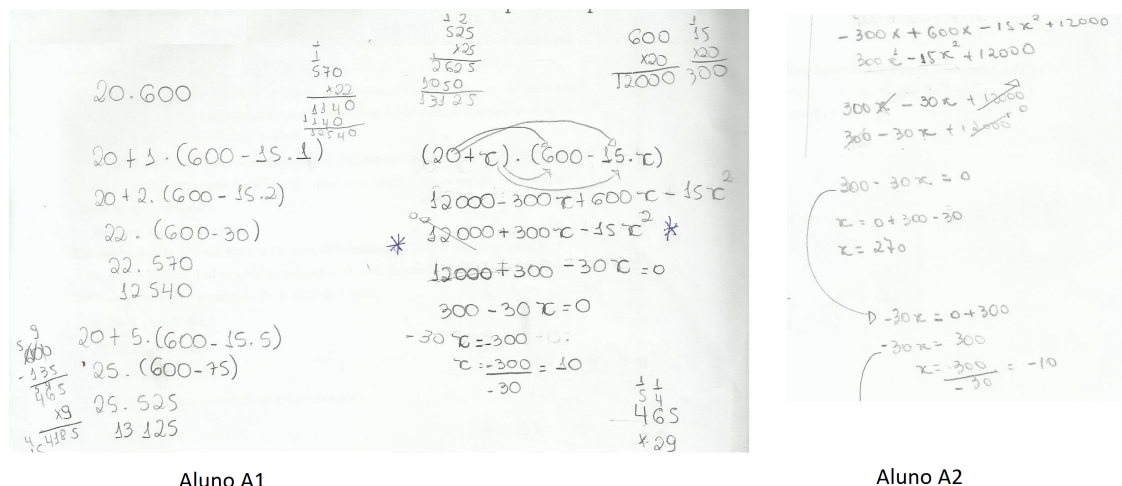 20.600
1
1
570
x22
1140
1140
12540
1 2
525
x25
2625
1050
13125
600
x20
12000
1
15
x20
300
20+1.(600-15.1)
20+2.(600-15.2)
22.(600-30)
22.570
12540
20+5.(600-15.5)
25.(600-75)
25.525
13125
9
600
-135
465
x9
4185
(20+x).(600-15.x)
12000-300x+600x-15x²
* 12000+300x-15x² *
12000+300-30x=0
300-30x=0
-30x=-300
x=-300/-30=10
1 1
5 4
465
x.29
Aluno A1
-300x+600x-15x²+12000
300x-15x²+12000
300x-30x+12000 0
300-30x+12000 0
300-30x=0
x=0+300-30
x=270
-30x=0+300
-30x=300
x=300/-30=-10
Aluno A2